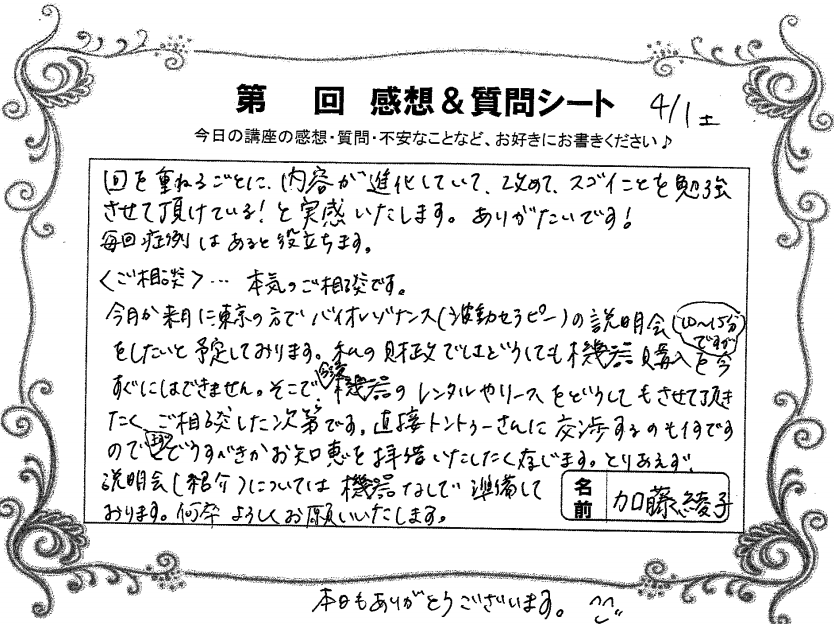 第　回 感想＆質問シート 4/1 土
今日の講座の感想・質問・不安なことなど、お好きにお書きください♪
回を重ねるごとに、内容が進化していて、改めて、スゴイことを勉強
させて頂けている！と実感いたします。ありがたいです！
毎回症例はあると役立ちます。
〈ご相談〉… 本気のご相談です。
今月か来月に東京の方でバイオレゾナンス(波動セラピー)の説明会(10～15分ですが)
をしたいと予定しております。私の財政ではどうしても機器購入を今
すぐにはできません。そこで、今後機器のレンタルやリースをどうしてもさせて頂き
たく、ご相談した次第です。直接トントゥーさんに交渉するのも
ので どうすべきかお知恵を拝借いたしたく存じます。とりあえず、
説明会(紹介)については機器なしで準備して
おります。何卒よろしくお願いいたします。
名前 加藤綾子
本日もありがとうございます。